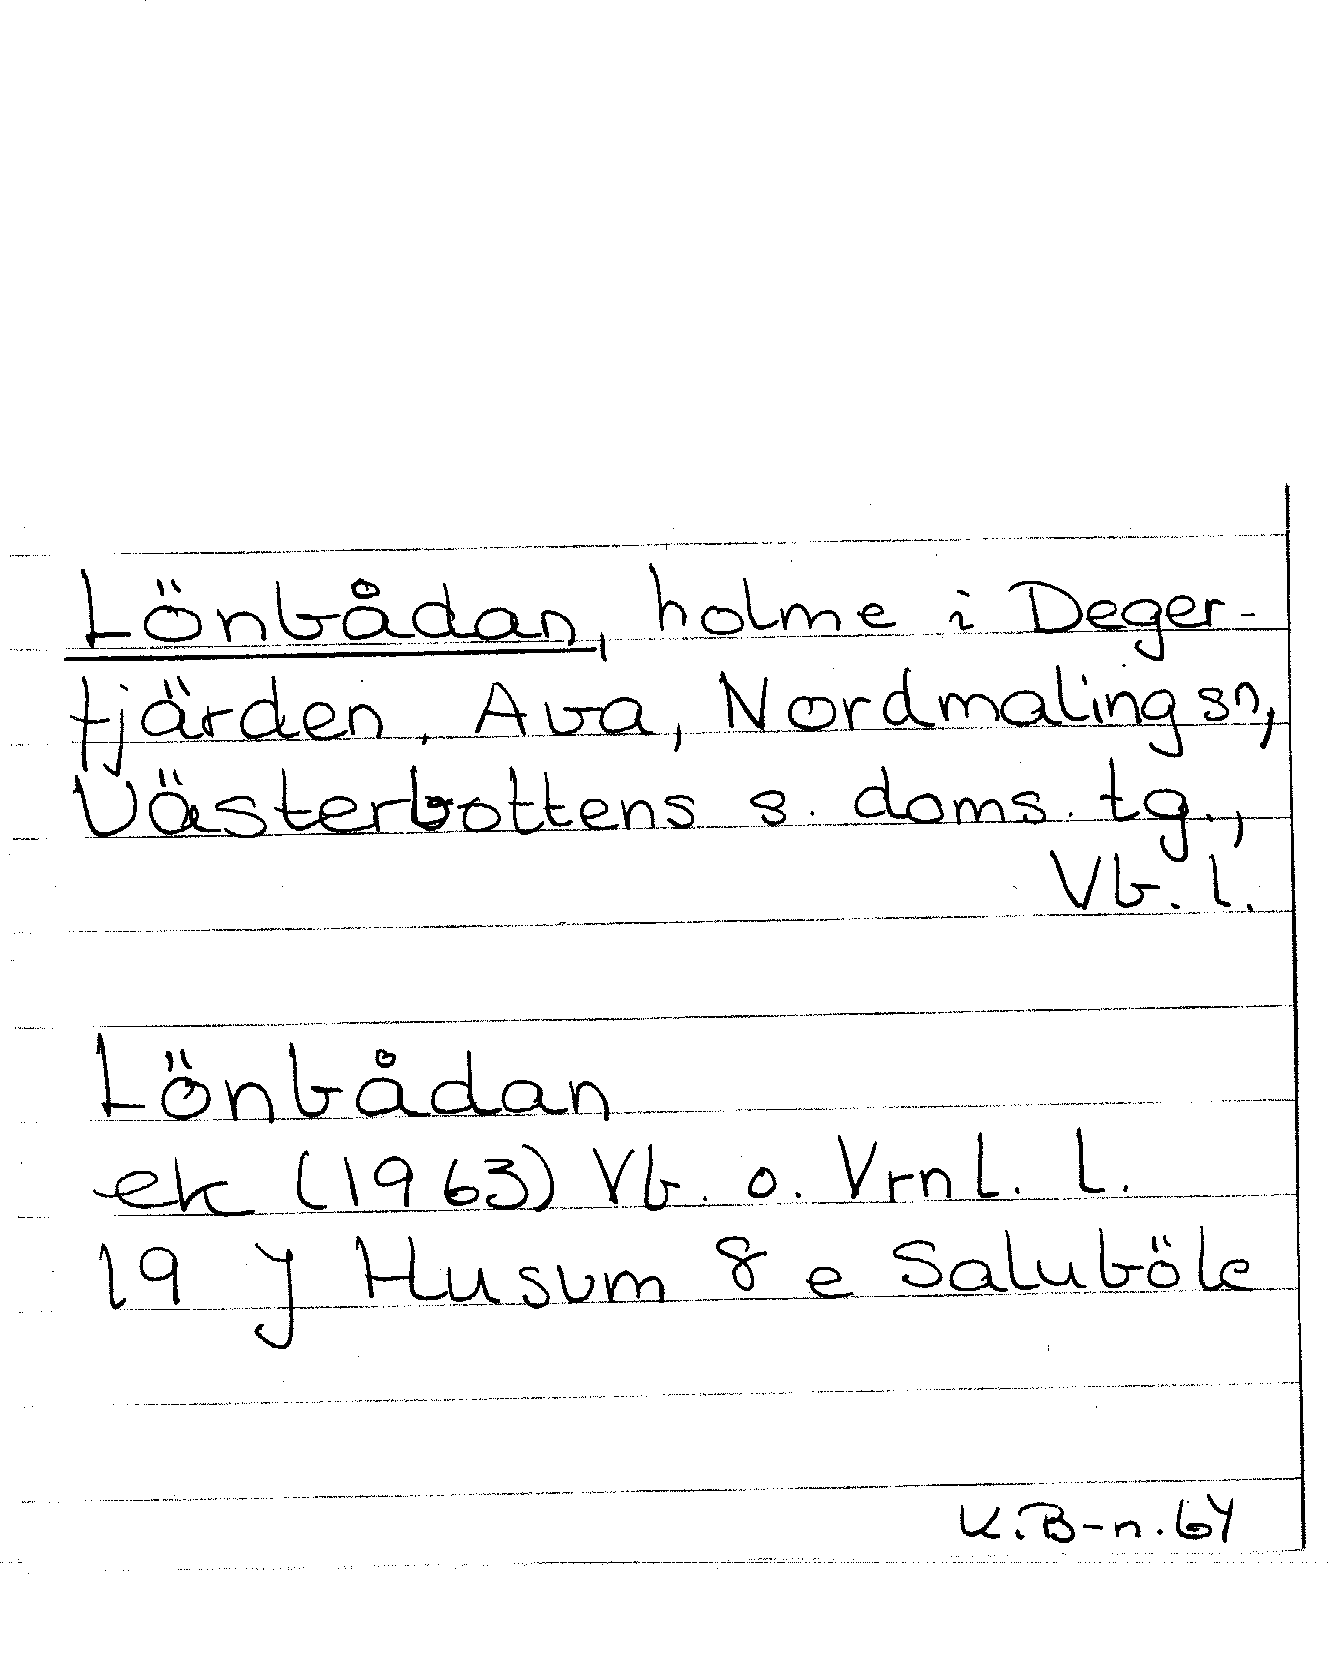 Lönbådan, holme i Deger-
fjärden, Ava, Nordmalings sn,
Västerbottens s. doms. tg.,
Vb. l.
Lönbådan
ek (1963) Vb. o. Vrnl. l.
19 J Husum 8 e Saluböle
K. B-n. 64